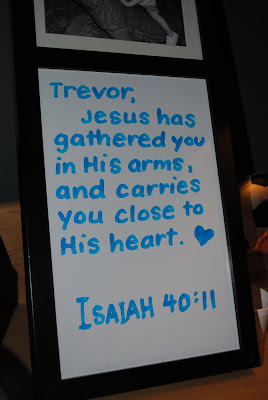 Trevor,
Jesus has
gathered you
in His arms,
and carries
you close to
His heart. 
ISAIAH 40:11